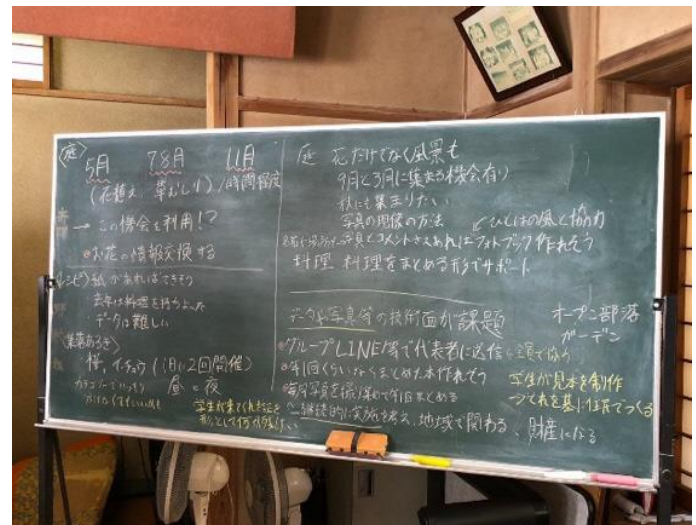 〈庭〉
5月 7.8月 11月
(花植え、草むしり) 1時間程度
→ この機会を利用!?
お花の情報交換する
〈レシピ〉紙があればできそう
去年は料理を持ちよった
データは難しい
〈集落あるき〉
桜、イチョウ (1泊に2回開催)
昼と夜
学生が来てくれたことを
形として何か残したい
庭 花だけでなく風景も
9月と3月に集まる機会有り
秋にも集まりたい
写真の現像の方法
ひとはの風と協力
写真とコメントさえあればフォトブック作れそう
料理 料理をまとめる形でサポート
データや写真等の技術面が課題
グループLINE等で代表者に送信
年1回くらいならまとめた本作れそう
毎月写真を撮り貯めて年1回まとめる
継続的に実施を考え、地域で関わる、財産になる
オープン部落
ガーデン
学生が見本を制作
→それを基に住民でつくる